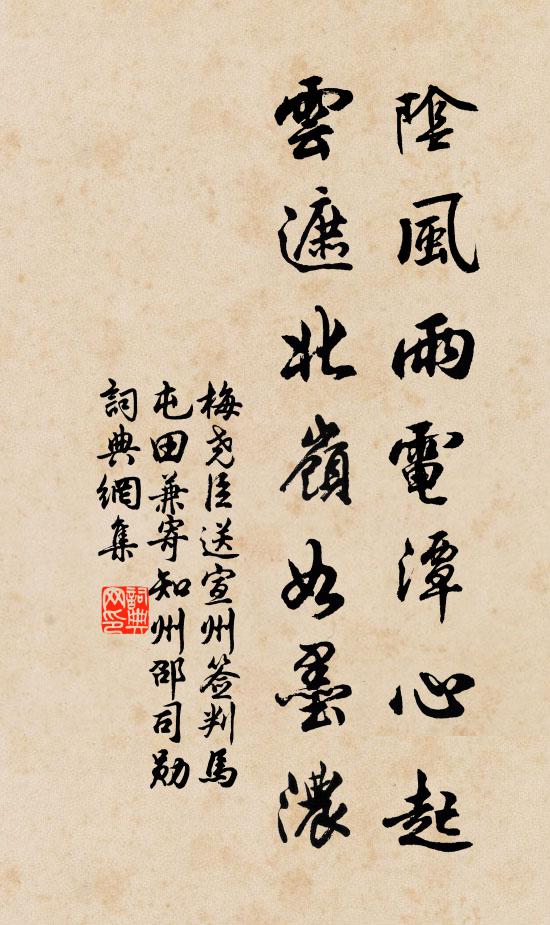 陰風雨電潭心起
雲遮北嶺如墨濃
梅尧臣送宣州签判馬
屯田兼寄知州邵司勋
詞典網集
詞典
网印